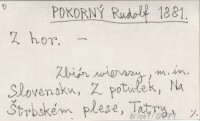 POKORNÝ Rudolf 1881.
Z hor. —
Zbiór wierszy, m.in.
Slovensku, Z potulek, Na
Štrbském plese, Tatry